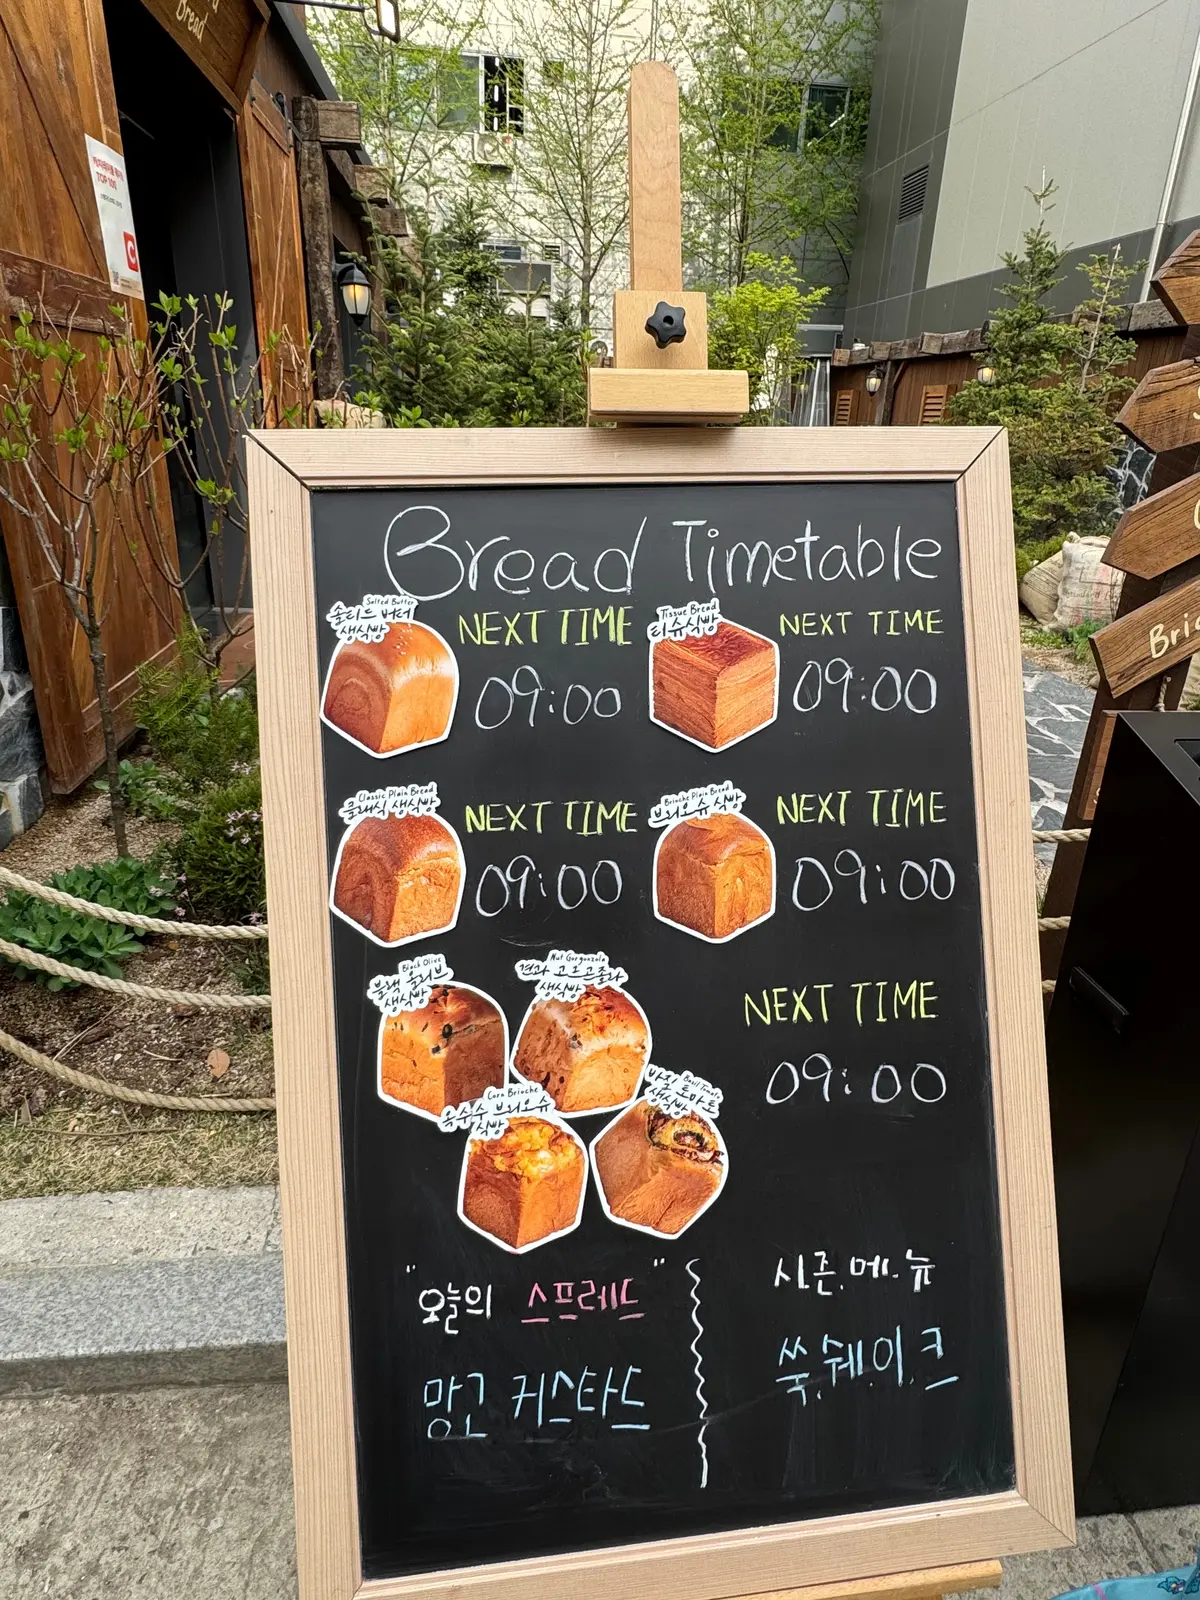 Bread
TOP 100
Bread Timetable
Salted Butter
솔티드 버터
생식빵
NEXT TIME
09:00
Tissue Bread
티슈식빵
NEXT TIME
09:00
Classic Plain Bread
클래식 생식빵
NEXT TIME
09:00
Brioche Plain Bread
브리오슈 식빵
NEXT TIME
09:00
Black Olive
블랙 올리브
생식빵
Nut Gorgonzola
견과 고르곤졸라
생식빵
NEXT TIME
09:00
Corn Brioche
옥수수 브리오슈
식빵
Basil Tomato
바질 토마토
생식빵
"오늘의 스프레드"
망고 커스타드
시즌.메.뉴
쑥.쉐.이.크
Bri